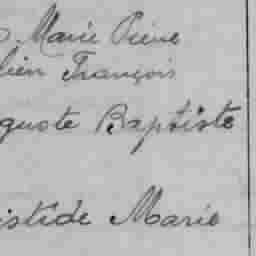 Marie Pierre
lien François
guste Baptiste
istide Marie